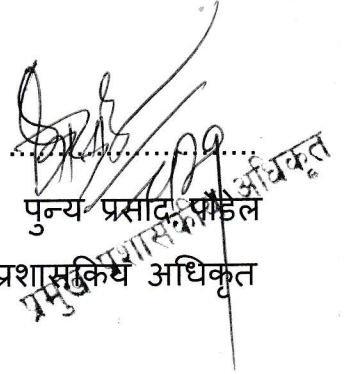 पुन्य प्रसाद पौडेल
प्रशासकिय अधिकृत
प्रमुख प्रशासकीय अधिकृत